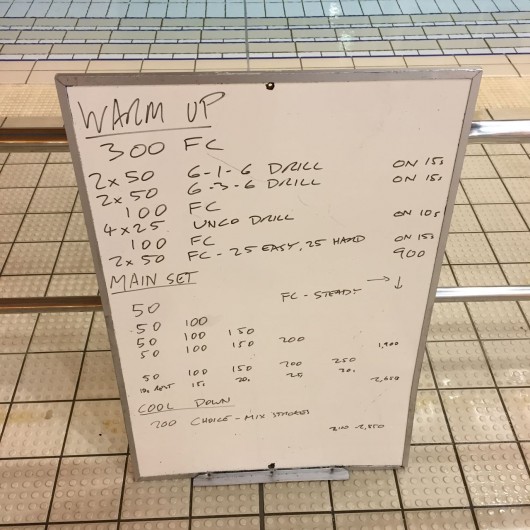 WARM UP
300 FC
2x50 6-1-6 DRILL ON 15s
2x50 6-3-6 DRILL ON 15s
100 FC
4x25 UNCO DRILL ON 10s
100 FC
2x50 FC - 25 EASY, 25 HARD ON 15s
900
MAIN SET
FC - STEADY → ↓
50
50 100
50 100 150
50 100 150 200 1,900
50 100 150 200 250
10s REST 15s 20s 25s 30s 2,650
COOL DOWN
200 CHOICE - MIX STROKES
2,850